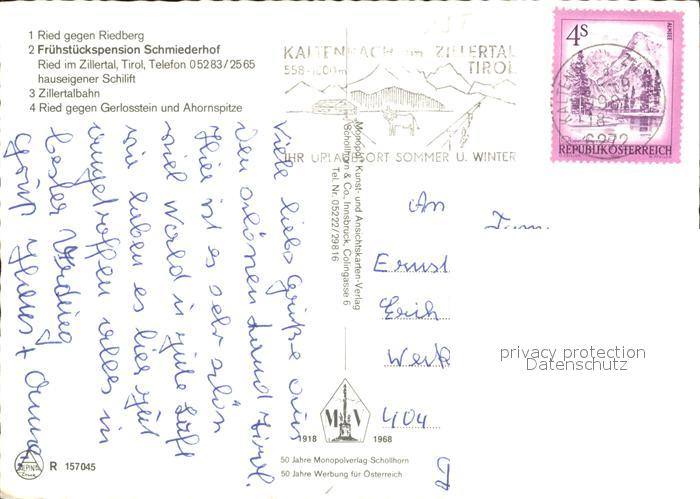 1 Ried gegen Riedberg
2 Frühstückspension Schmiederhof
Ried im Zillertal, Tirol, Telefon 05283/2565
hauseigener Schilift
3 Zillertalbahn
4 Ried gegen Gerlosstein und Ahornspitze
KALTENBACH im ZILLERTAL
TIROL
IHR URLAUBSORT SOMMER U. WINTER
4s
ALMSEE
REPUBLIK ÖSTERREICH
6272
Viele liebe Grüße aus
den schönen Land Tirol.
Hier ist es sehr schön
viel Wald u gute Luft
wir haben es hier gut
angetroffen alles in
bester
Monopol Kunst- und Ansichtskarten-Verlag
Schöllhorn & Co., Innsbruck, Colingasse 6
Tel. Nr. 05222/29816
An
Ernst
Erich
Werk
404
privacy protection
Datenschutz
M V
1918 1968
50 Jahre Monopolverlag Schöllhorn
50 Jahre Werbung für Österreich
R 157045